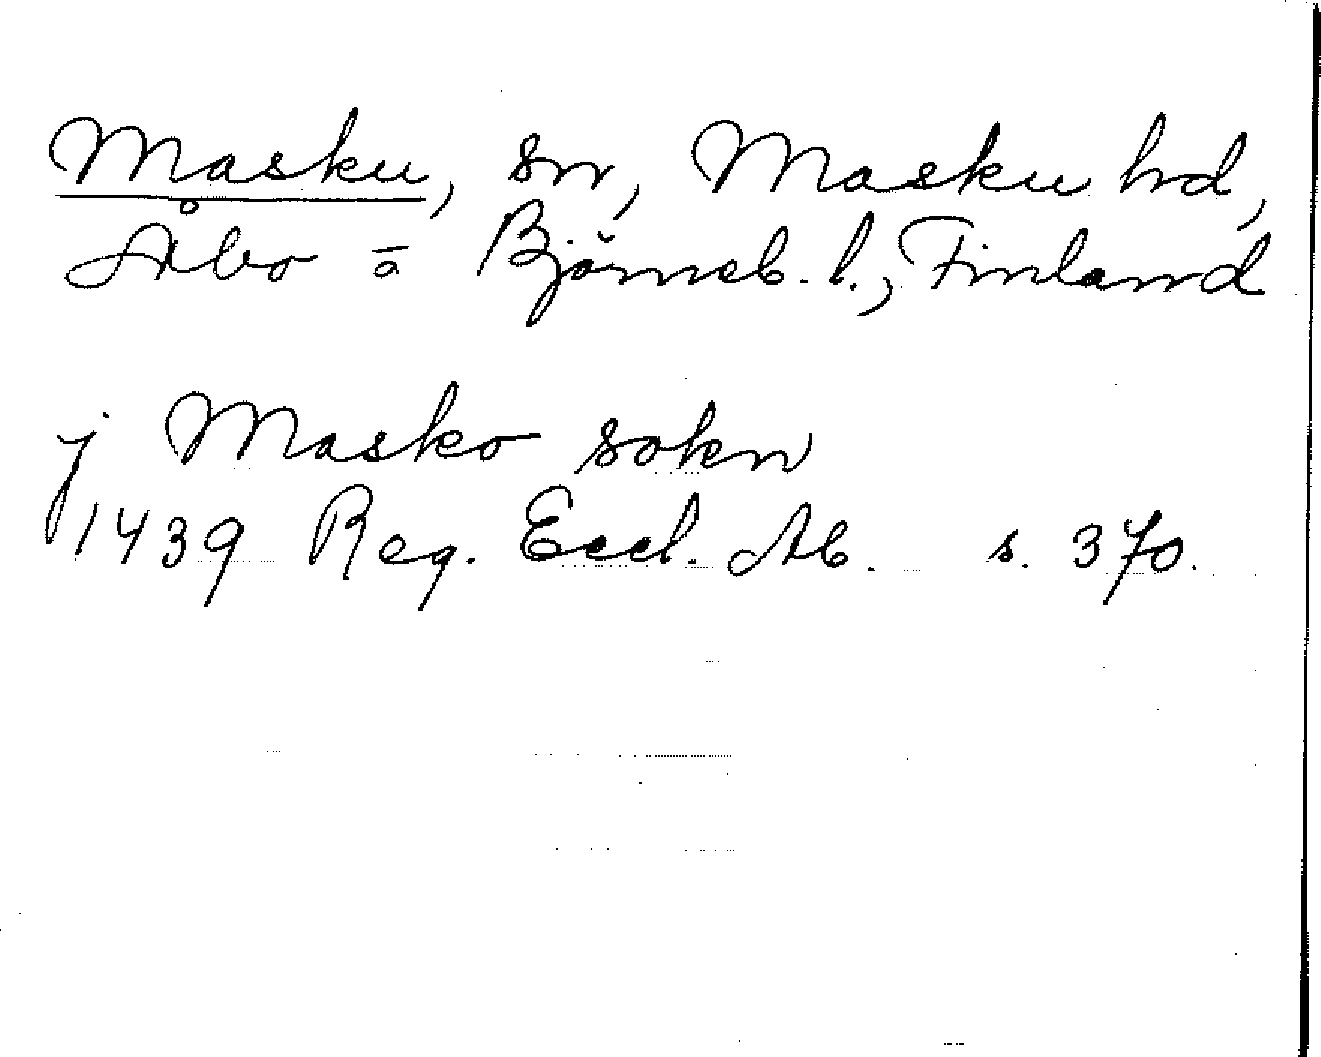 Masku, sn, Masku hd,
Åbo o Björneb. l., Finland
j Masko sokn
1439 Reg. Eccl. Ab. s. 370.